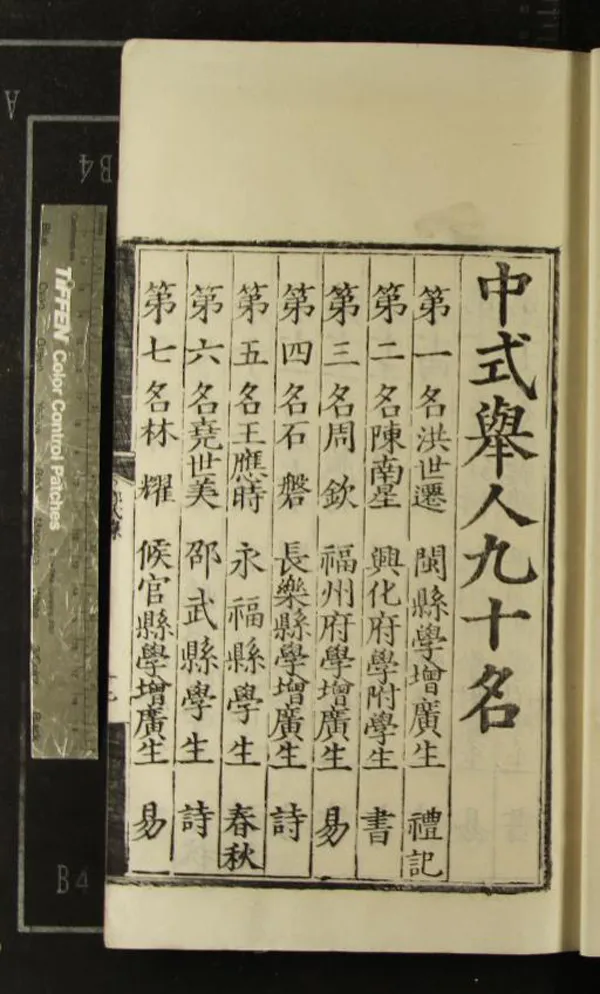 中式舉人九十名
第一名洪世遷 閩縣學增廣生 禮記
第二名陳南星 興化府學附學生 書
第三名周欽 福州府學增廣生 易
第四名石磐 長樂縣學增廣生 詩
第五名王應時 永福縣學生 春秋
第六名堯世美 邵武縣學生 詩
第七名林耀 候官縣學增廣生 易
TIFFEN Color Control Patches
A
B4
B4